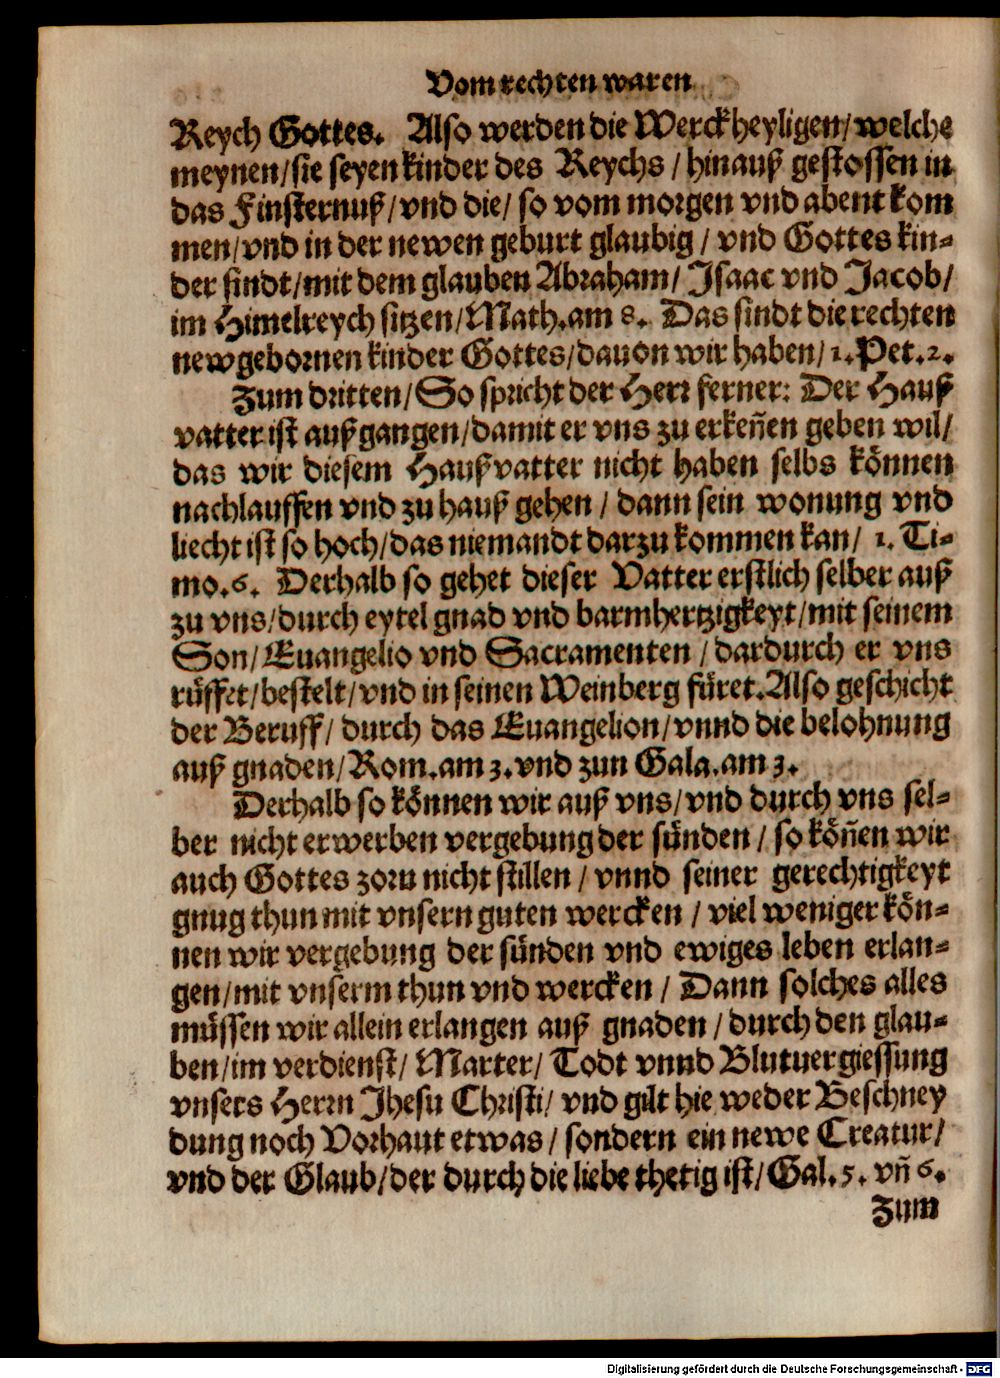 Vom rechten waren
Reych Gottes. Also werden die Werckheyligen/welche
meynen/sie seyen kinder des Reychs/hinauß gestossen in
das Finsternuß/vnd die/so vom morgen vnd abent kom
men/vnd in der newen geburt glaubig/vnd Gottes kin-
der sindt/mit dem glauben Abraham/Isaac vnd Jacob/
im Himelreych sitzen/Math.am 8. Das sindt die rechten
newgebornen kinder Gottes/dauon wir haben/1.Pet.2.
Zum dritten/So spricht der Herr ferner: Der Hauß
vatter ist außgangen/damit er vns zu erkeñen geben wil/
das wir diesem Haußvatter nicht haben selbs können
nachlauffen vnd zu hauß gehen/dann sein wonung vnd
liecht ist so hoch/das niemandt darzu kommen kan/1.Ti-
mo.6. Derhalb so gehet dieser Vatter erstlich selber auß
zu vns/durch eytel gnad vnd barmhertzigkeyt/mit seinem
Son/Euangelio vnd Sacramenten/dardurch er vns
rüffet/bestelt/vnd in seinen Weinberg füret.Also geschicht
der Beruff/durch das Euangelion/vnnd die belohnung
auß gnaden/Rom.am 3.vnd zun Gala.am 3.
Derhalb so können wir auß vns/vnd durch vns sel-
ber nicht erwerben vergebung der sünden/so köñen wir
auch Gottes zorn nicht stillen/vnnd seiner gerechtigkeyt
gnug thun mit vnsern guten wercken/viel weniger kön-
nen wir vergebung der sünden vnd ewiges leben erlan-
gen/mit vnserm thun vnd wercken/Dann solches alles
müssen wir allein erlangen auß gnaden/durch den glau-
ben/im verdienst/Marter/Todt vnnd Blutuergiessung
vnsers Herrn Jhesu Christi/vnd gilt hie weder Beschney
dung noch Vorhaut etwas/sondern ein newe Creatur/
vnd der Glaub/der durch die liebe thetig ist/Gal.5.vñ 6.
Zum
Digitalisierung gefördert durch die Deutsche Forschungsgemeinschaft - DFG